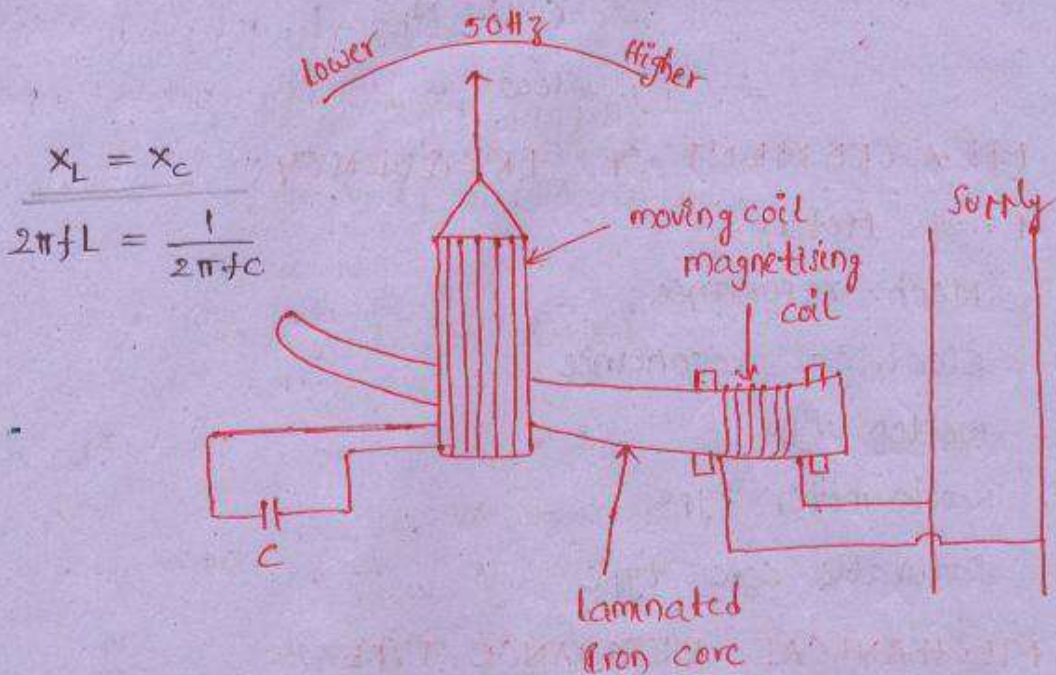 Lower 50Hz Higher
X_L = X_C
2πfL = 1/2πfC
moving coil
magnetising
coil
Supply
C
laminated
Iron core